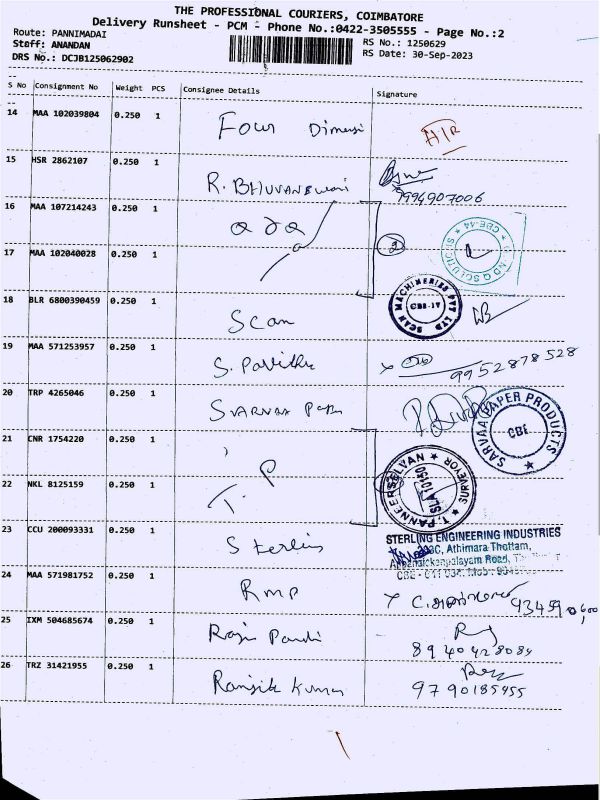 THE PROFESSIONAL COURIERS, COIMBATORE
Delivery Runsheet - PCM - Phone No.:0422-3505555 - Page No.:2
Route: PANNIMADAI
Staff: ANANDAN
RS No.: 1250629
DRS No.: DCJB125062902
RS Date: 30-Sep-2023
S No Consignment No Weight PCS Consignee Details Signature
14 MAA 102039804 0.250 1 Four Dimensi
15 HSR 2862107 0.250 1 R. BHUVANESWARI 9994907006
16 MAA 107214243 0.250 1
17 MAA 102040028 0.250 1 2
CBE-44
18 BLR 6800390459 0.250 1 Scan
SCAN MACHINERIES PVT LTD
CBE-IV
19 MAA 571253957 0.250 1 S. Pavithra 9952878528
20 TRP 4265046 0.250 1 SVARVAA Paper
SARVAA PAPER PRODUCTS
CBE
21 CNR 1754220 0.250 1
22 NKL 8125159 0.250 1 T. P
T. PANNEERSELVAN
SURVEYOR
SLA 10150
23 CCU 200093331 0.250 1 Sterlin
STERLING ENGINEERING INDUSTRIES
Athimara Thottam,
24 MAA 571981752 0.250 1 RMP
25 IXM 504685674 0.250 1 Raja Pandi 8940428084
26 TRZ 31421955 0.250 1 Ranjith Kumar 9790185455